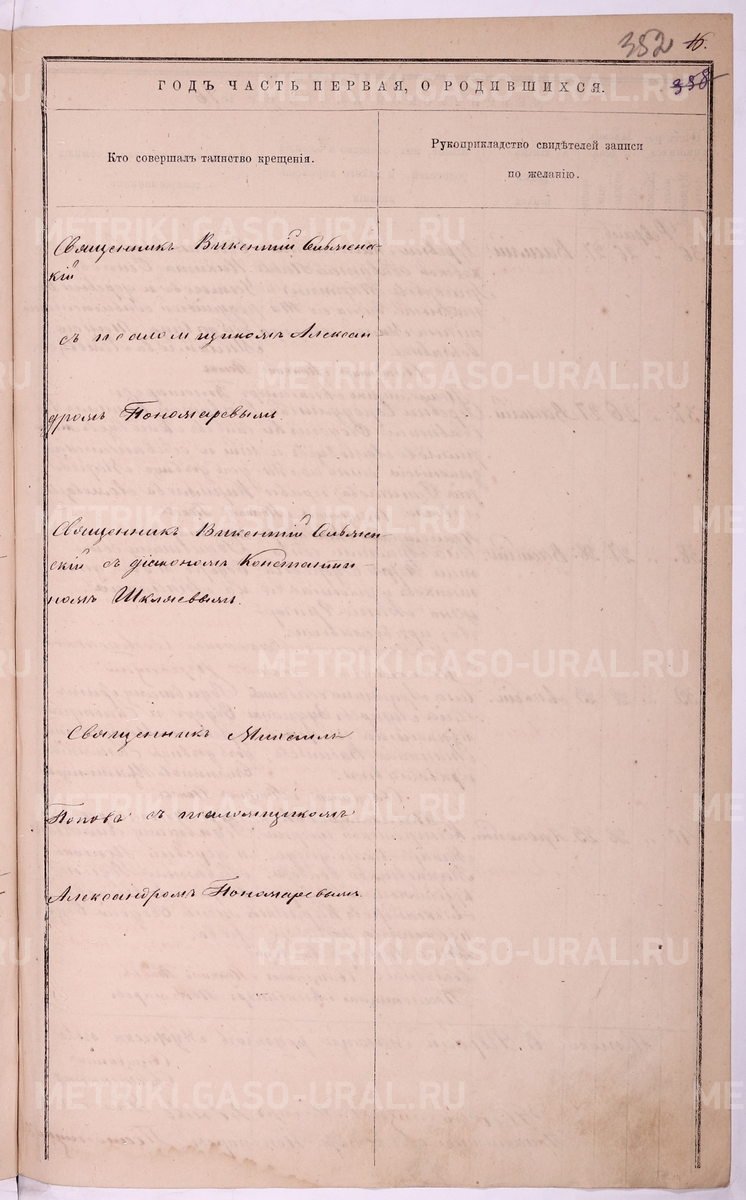 352 16.
358
ГОДЪ ЧАСТЬ ПЕРВАЯ, О РОДИВШИХСЯ.
Кто совершалъ таинство крещенія.
Рукоприкладство свидѣтелей записи
по желанію.
Священникъ Викентій
скій
съ псаломщикомъ Алексан
дромъ Пономаревымъ.
Священникъ Викентій
скій съ діакономъ Константи-
номъ Шкляевымъ.
Священникъ Михаилъ
Поповъ съ псаломщикомъ
Александромъ Пономаревымъ
METRIKI.GASO-URAL.RU